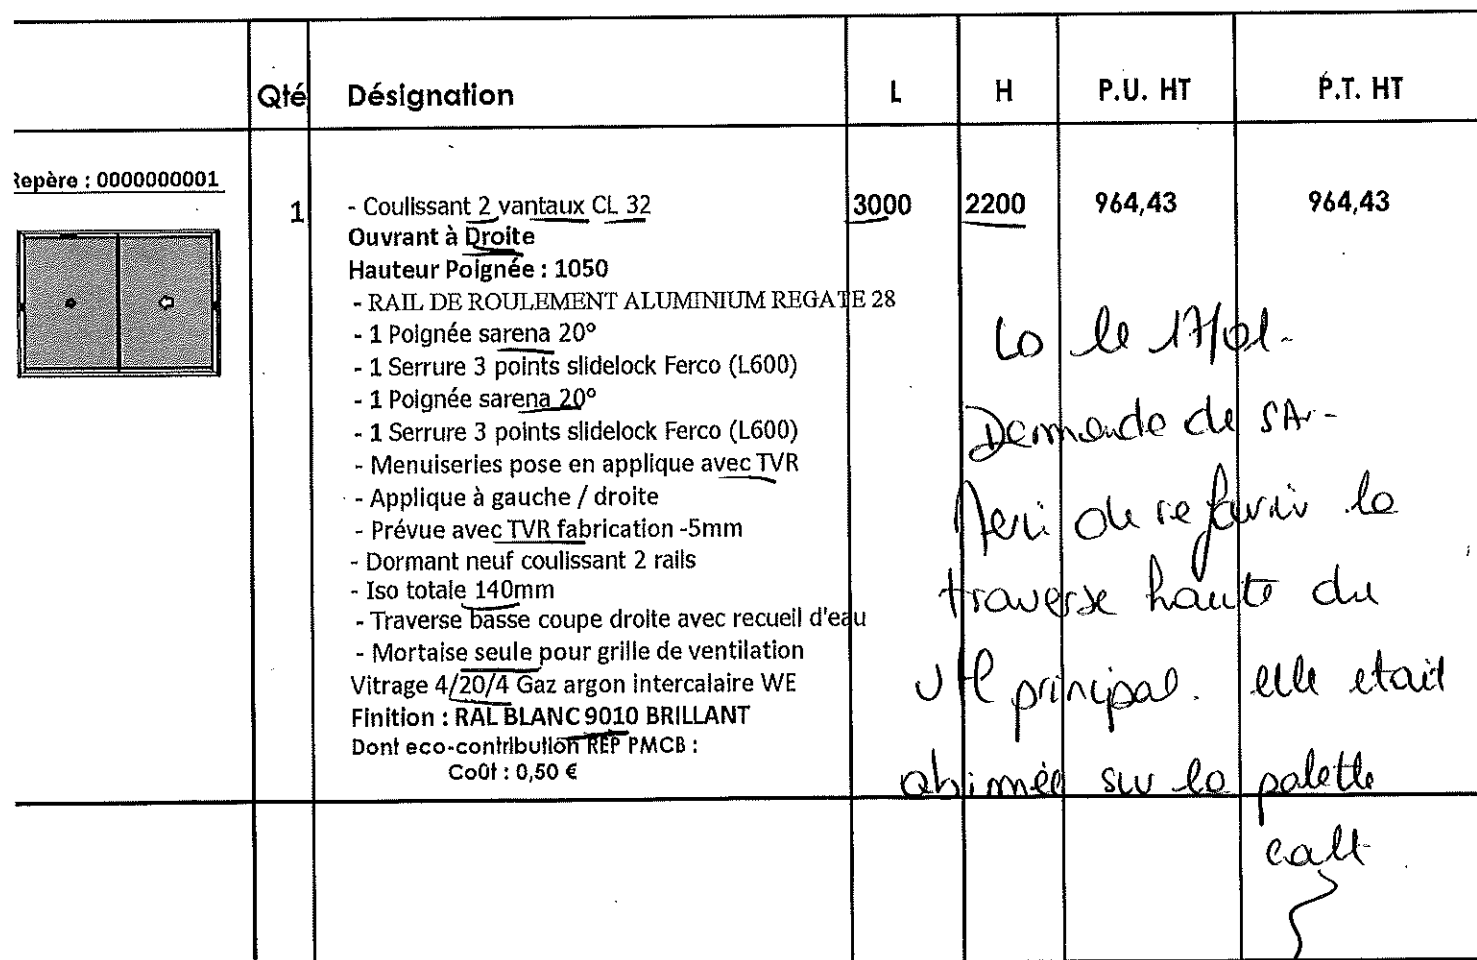 Qté Désignation L H P.U. HT P.T. HT
Repère : 0000000001
1 - Coulissant 2 vantaux CL 32 3000 2200 964,43 964,43
Ouvrant à Droite
Hauteur Poignée : 1050
- RAIL DE ROULEMENT ALUMINIUM REGATE 28
- 1 Poignée sarena 20°
- 1 Serrure 3 points slidelock Ferco (L600)
- 1 Poignée sarena 20°
- 1 Serrure 3 points slidelock Ferco (L600)
- Menuiseries pose en applique avec TVR
- Applique à gauche / droite
- Prévue avec TVR fabrication -5mm
- Dormant neuf coulissant 2 rails
- Iso totale 140mm
- Traverse basse coupe droite avec recueil d'eau
- Mortaise seule pour grille de ventilation
Vitrage 4/20/4 Gaz argon intercalaire WE
Finition : RAL BLANC 9010 BRILLANT
Dont eco-contribution REP PMCB :
Coût : 0,50 €
le 17/01.
Demande de SAV-
Merci de refournir la
traverse haute du
vtl principal. elle etait
abimée sur la palette